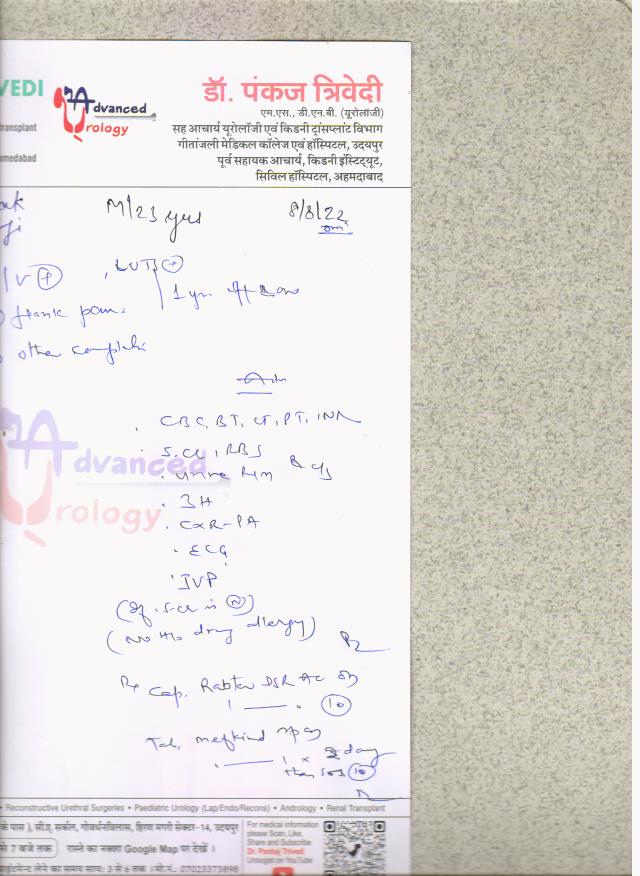 VEDI
Advanced
Urology
डॉ. पंकज त्रिवेदी
एम.एस., डी.एन.बी. (यूरोलॉजी)
ransplant
सह आचार्य यूरोलॉजी एवं किडनी ट्रांसप्लांट विभाग
गीतांजली मेडिकल कॉलेज एवं हॉस्पिटल, उदयपुर
hmedabad
पूर्व सहायक आचार्य, किडनी इंस्टिट्यूट,
सिविल हॉस्पिटल, अहमदाबाद
M/23 yrs 8/8/22
LUTS +
flank pain
other
CBC, BT, CT, PT, INR
S.Cr, RBS
Urine R/M & C/S
BH
CXR-PA
ECG
IVP
(If S.Cr is N)
(No H/o drug allergy)
Rx Cap. DSR AC OD
1 10
Tab. Mefkind
1 x day
then SOS 10
Advanced
Urology
• Reconstructive Urethral Surgeries • Paediatric Urology (Lap/Endo/Recons) • Andrology • Renal Transplant
के पास ), सी.ए. सर्कल, गोवर्धनविलास, हिरण मगरी सेक्टर-14, उदयपुर
से 7 बजे तक रास्ते का नक्शा Google Map पर देखें ।
For medical information
please Scan, Like,
Share and Subscribe
Dr. Pankaj Trivedi
Urologist on YouTube